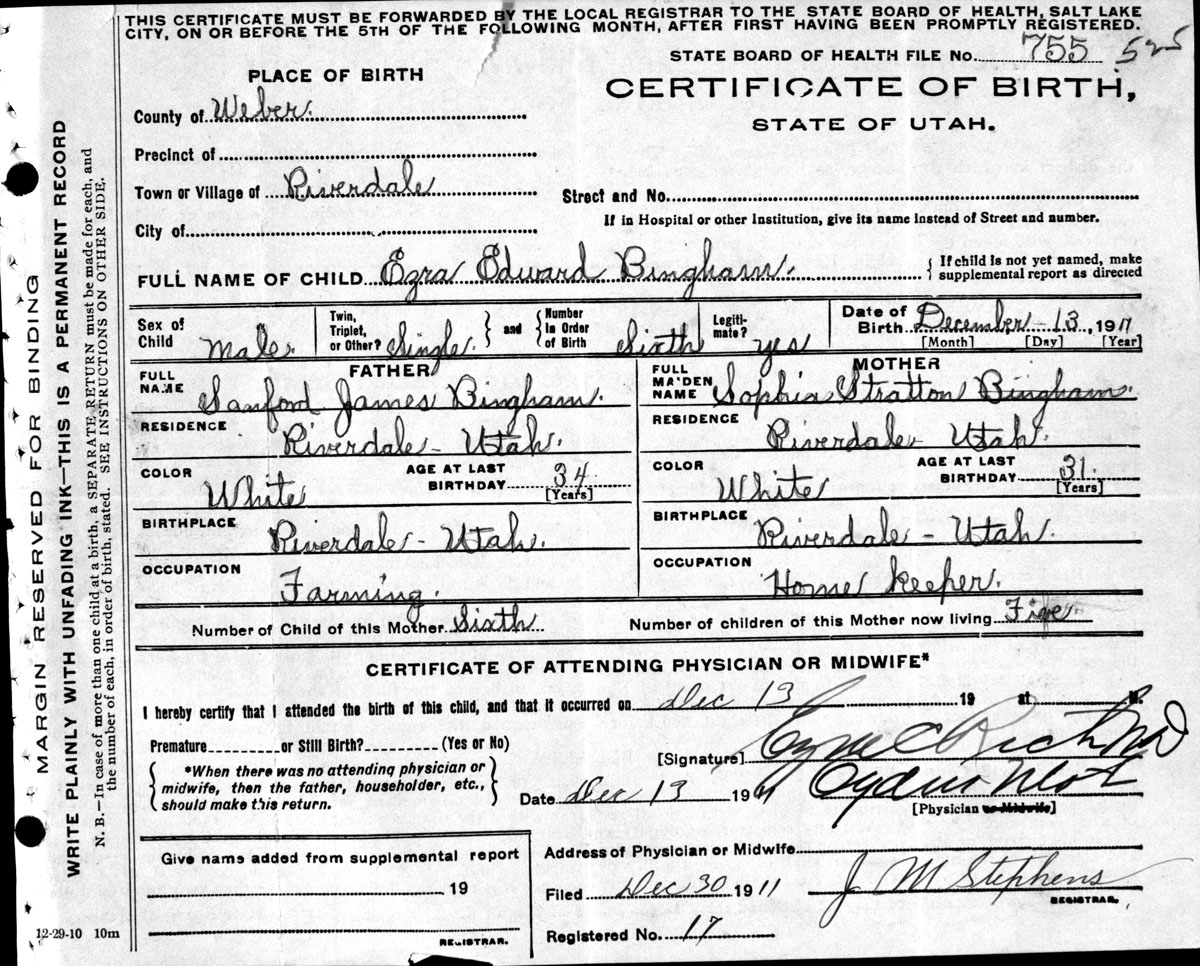 THIS CERTIFICATE MUST BE FORWARDED BY THE LOCAL REGISTRAR TO THE STATE BOARD OF HEALTH, SALT LAKE
CITY, ON OR BEFORE THE 5TH OF THE FOLLOWING MONTH, AFTER FIRST HAVING BEEN PROMPTLY REGISTERED.
STATE BOARD OF HEALTH FILE No. 755 525
PLACE OF BIRTH
CERTIFICATE OF BIRTH,
STATE OF UTAH.
County of Weber.
Precinct of
Town or Village of Riverdale
Street and No.
If in Hospital or other Institution, give its name instead of Street and number.
City of
FULL NAME OF CHILD Ezra Edward Bingham. { If child is not yet named, make
supplemental report as directed
Sex of
Child Male.
Twin,
Triplet,
or Other? Single. } and { Number
in Order
of Birth Sixth
Legiti-
mate? yes
Date of
Birth December - 13, 1911
[Month] [Day] [Year]
FATHER
FULL
NAME Sanford James Bingham.
RESIDENCE
Riverdale - Utah.
COLOR
White
AGE AT LAST
BIRTHDAY 34.
[Years]
BIRTHPLACE
Riverdale - Utah.
OCCUPATION
Farming.
MOTHER
FULL
MAIDEN
NAME Sophia Stratton Bingham.
RESIDENCE
Riverdale - Utah.
COLOR
White
AGE AT LAST
BIRTHDAY 31.
[Years]
BIRTHPLACE
Riverdale - Utah.
OCCUPATION
Home Keeper.
Number of Child of this Mother Sixth
Number of children of this Mother now living Five
CERTIFICATE OF ATTENDING PHYSICIAN OR MIDWIFE*
I hereby certify that I attended the birth of this child, and that it occurred on Dec 13 19 at M.
Premature or Still Birth? (Yes or No)
{ *When there was no attending physician or
midwife, then the father, householder, etc.,
should make this return. }
[Signature]
Date Dec 13 1911
[Physician or Midwife]
Give name added from supplemental report
19
REGISTRAR.
Address of Physician or Midwife
Filed Dec 30 1911 J. M Stephens
REGISTRAR.
Registered No. 17
12-29-10 10m
MARGIN RESERVED FOR BINDING
WRITE PLAINLY WITH UNFADING INK—THIS IS A PERMANENT RECORD
N. B.—In case of more than one child at a birth, a SEPARATE RETURN must be made for each, and
the number of each, in order of birth, stated. SEE INSTRUCTIONS ON OTHER SIDE.